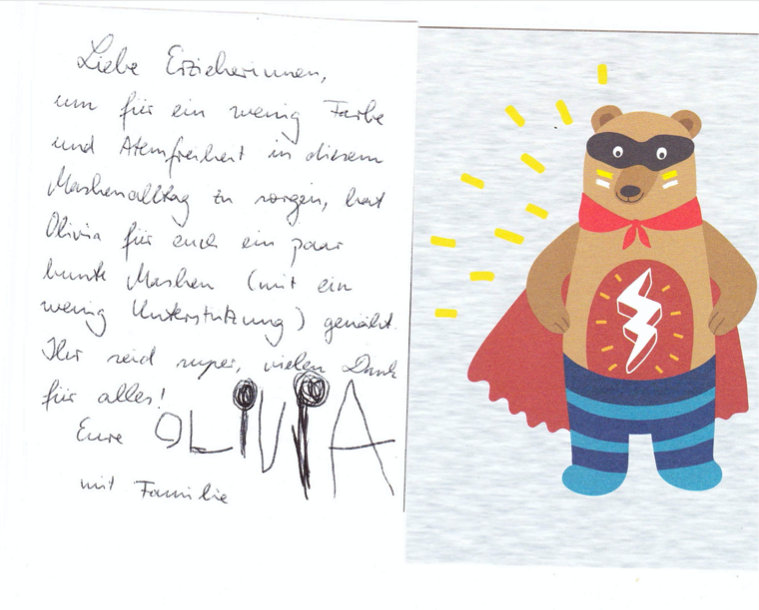 Liebe Erzieherinnen,
um für ein wenig Farbe
und Atemfreiheit in diesem
Maskenalltag zu sorgen, hat
Olivia für euch ein paar
bunte Masken (mit ein
wenig Unterstützung) genäht.
Ihr seid super, vielen Dank
für alles!
Eure OLiViA
mit Familie